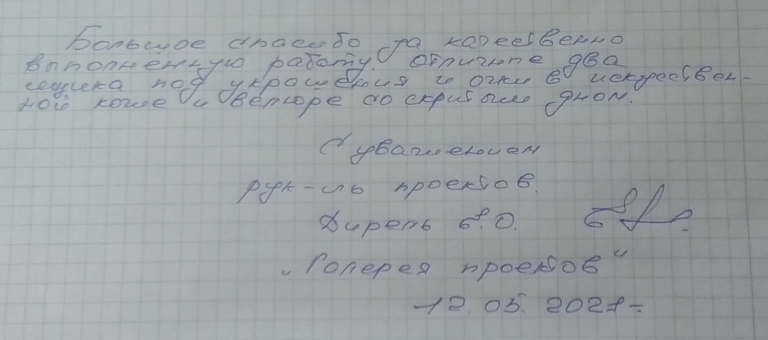 Большое спасибо за качественно
выполненную работу. Отличные два
ящика под украшения и очки в искуствен-
ной коже и велюре со скрытым дном.
С уважением
рук-ль проектов.
Дирель В.О.
"Галерея проектов"
12.05.2021г